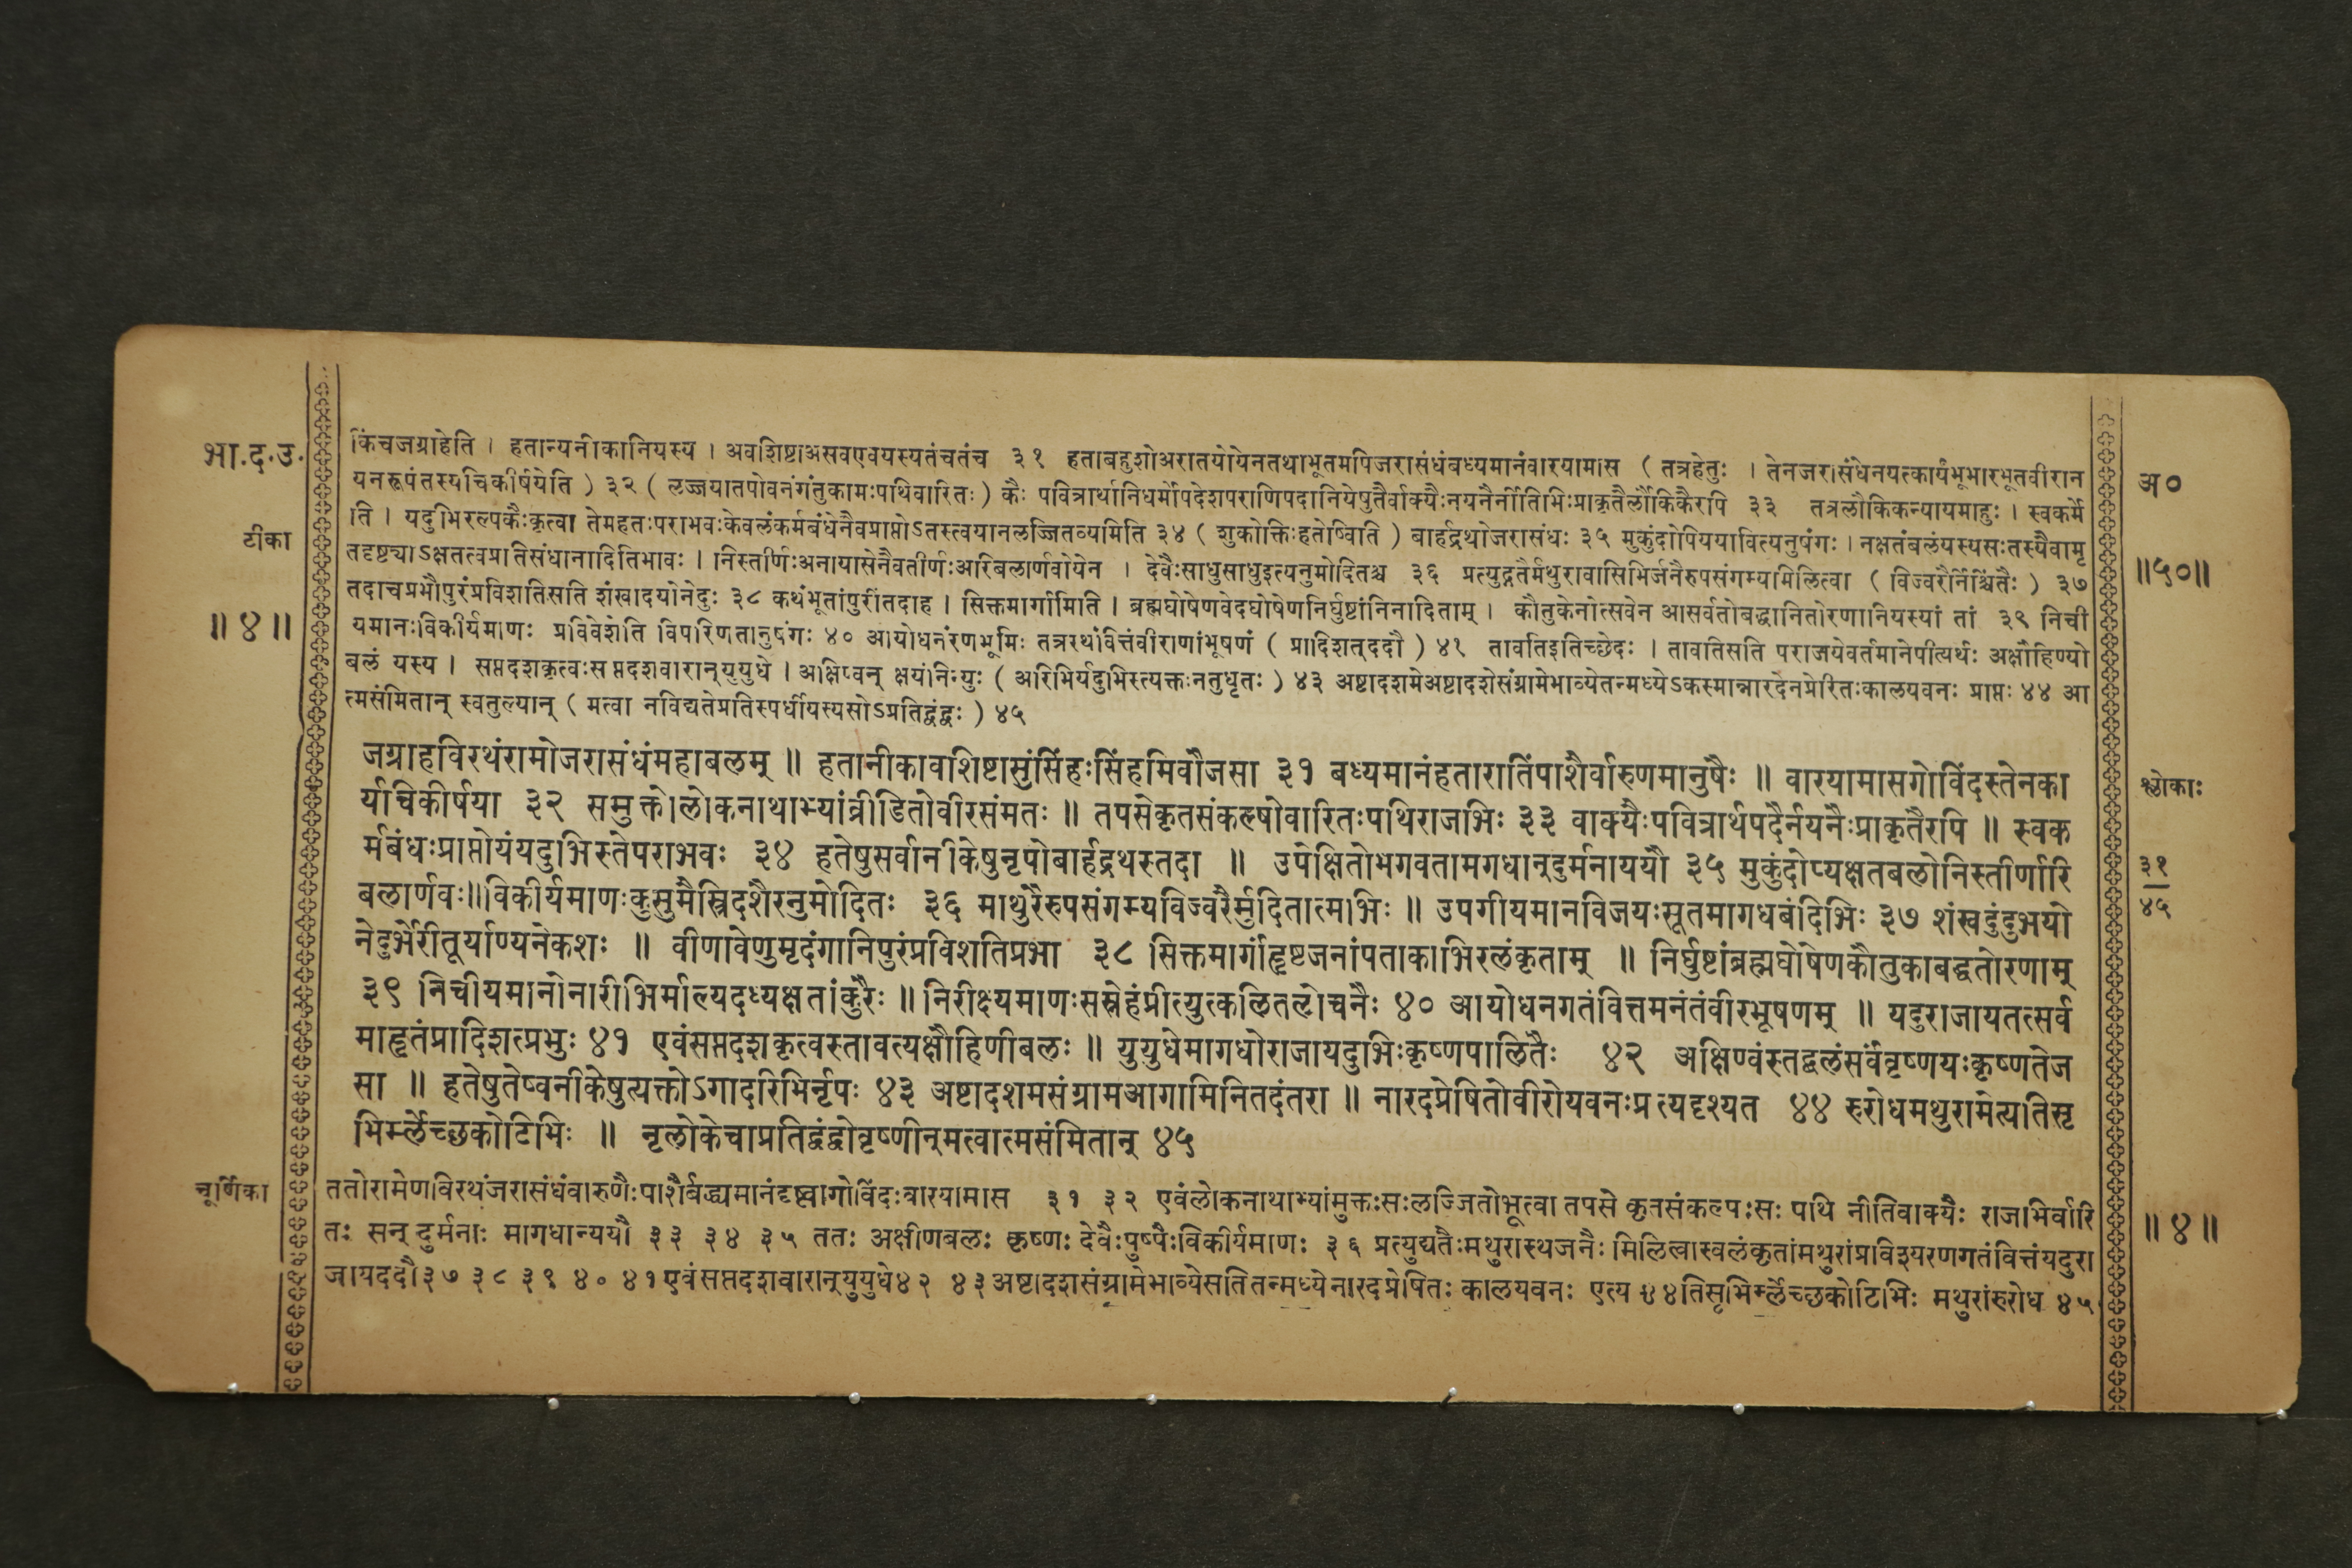 भा.द.उ.
टीका
॥ ४ ॥
किंचजग्राहेति । हतान्यनीकानियस्य । अवशिष्टाअसवएवयस्यतंचतंच ३१ हताबहुशोअरातयोयेनतथाभूतमपिजरासंधंबध्यमानंवारयामास ( तत्रहेतुः । तेनजरासंधेनयत्कार्यंभूभारभूतवीरान
यनरूपंतस्यचिकीर्षयेति ) ३२ ( लज्जयातपोवनंगंतुकामःपथिवारितः ) कैः पवित्रार्थानिधर्मोपदेशपराणिपदानियेषुतैर्वाक्यैःनयनैर्नीतिभिःप्राकृतैर्लौकिकैरपि ३३ तत्रलौकिकन्यायमाहुः । स्वकर्मे
ति । यदुभिरल्पकैःकृत्वा तेमहतःपराभवःकेवलंकर्मबंधेनैवप्राप्तोऽतस्त्वयानलज्जितव्यमिति ३४ ( शुकोक्तिःहतोष्विति ) बार्हद्रथोजरासंधः ३५ मुकुंदोपिययावित्यनुषंगः । नक्षतंबलंयस्यसःतस्यैवामृ
तदृष्ट्याऽक्षतत्वप्रतिसंधानादितिभावः । निस्तीर्णःअनायासेनैवतीर्णःअरिबलार्णवोयेन । देवैःसाधुसाधुइत्यनुमोदितश्च ३६ प्रत्युद्गतैर्मथुरावासिभिर्जनैरुपसंगम्यमिलित्वा ( विज्वरैर्निश्चिंतैः ) ३७
तदाचप्रभौपुरंप्रविशतिसति शंखादयोनेदुः ३८ कथंभूतांपुरींतदाह । सिक्तमार्गामिति । ब्रह्मघोषेणवेदघोषेणनिर्घुष्टांनिनादिताम् । कौतुकेनोत्सवेन आसर्वतोबद्धानितोरणानियस्यां तां ३९ निची
यमानःविकीर्यमाणः प्रविवेशेति विपरिणतानुषंगः ४० आयोधनंरणभूमिः तत्रस्थंवित्तंवीराणांभूषणं ( प्रादिशत्ददौ ) ४१ तावतिइतिच्छेदः । तावतिसति पराजयेवर्तमानेपीत्यर्थः अक्षौहिण्यो
बलं यस्य । सप्तदशकृत्वःसप्तदशवारान्युयुधे । अक्षिण्वन् क्षयंनिन्युः ( अरिभिर्यदुभिस्त्यक्तःनतुधृतः ) ४३ अष्टादशमेअष्टादशेसंग्रामेभाव्येतन्मध्येऽकस्मान्नारदेनप्रेरितःकालयवनः प्राप्तः ४४ आ
त्मसंमितान् स्वतुल्यान् ( मत्वा नविद्यतेप्रतिस्पर्धीयस्यसोऽप्रतिद्वंद्वः ) ४५
जग्राहविरथंरामोजरासंधंमहाबलम् ॥ हतानीकावशिष्टासुंसिंहःसिंहमिवौजसा ३१ बध्यमानंहतारातिंपाशैर्वारुणमानुषैः ॥ वारयामासगोविंदस्तेनका
र्यचिकीर्षया ३२ समुक्तोलोकनाथाभ्यांव्रीडितोवीरसंमतः ॥ तपसेकृतसंकल्पोवारितःपथिराजभिः ३३ वाक्यैःपवित्रार्थपदैर्नयनैःप्राकृतैरपि ॥ स्वक
र्मबंधःप्राप्तोयंयदुभिस्तेपराभवः ३४ हतेषुसर्वानीकेषुनृपोबार्हद्रथस्तदा ॥ उपेक्षितोभगवतामगधान्दुर्मनाययौ ३५ मुकुंदोप्यक्षतबलोनिस्तीर्णारि
बलार्णवः॥विकीर्यमाणःकुसुमैस्त्रिदशैरनुमोदितः ३६ माथुरैरुपसंगम्यविज्वरैर्मुदितात्मभिः ॥ उपगीयमानविजयःसूतमागधबंदिभिः ३७ शंखदुंदुभयो
नेदुर्भेरीतूर्याण्यनेकशः ॥ वीणावेणुमृदंगानिपुरंप्रविशतिप्रभौ ३८ सिक्तमार्गांहृष्टजनांपताकाभिरलंकृताम् ॥ निर्घुष्टांब्रह्मघोषेणकौतुकाबद्धतोरणाम्
३९ निचीयमानोनारीभिर्माल्यदध्यक्षतांकुरैः ॥ निरीक्ष्यमाणःसस्नेहंप्रीत्युत्कलितलोचनैः ४० आयोधनगतंवित्तमनंतंवीरभूषणम् ॥ यदुराजायतत्सर्व
माहृतंप्रादिशत्प्रभुः ४१ एवंसप्तदशकृत्वस्तावत्यक्षौहिणीबलः ॥ युयुधेमागधोराजायदुभिःकृष्णपालितैः ४२ अक्षिण्वंस्तद्बलंसर्वंवृष्णयःकृष्णतेज
सा ॥ हतेषुतेष्वनीकेषुत्यक्तोऽगादरिभिर्नृपः ४३ अष्टादशमसंग्रामआगामिनितदंतरा ॥ नारदप्रेषितोवीरोयवनःप्रत्यदृश्यत ४४ रुरोधमथुरामेत्यतिसृ
भिर्म्लेच्छकोटिभिः ॥ नृलोकेचाप्रतिद्वंद्वोवृष्णीन्मत्वात्मसंमितान् ४५
चूर्णिका
ततोरामेणविरथंजरासंधंवारुणैःपाशैर्बद्ध्यमानंदृष्ट्वागोविंदःवारयामास ३१ ३२ एवंलोकनाथाभ्यांमुक्तःसःलज्जितोभूत्वा तपसे कृतसंकल्पःसः पथि नीतिवाक्यैः राजभिर्वारि
तः सन् दुर्मनाः मागधान्ययौ ३३ ३४ ३५ ततः अक्षीणबलः कृष्णः देवैःपुष्पैःविकीर्यमाणः ३६ प्रत्युद्यतैःमथुरास्थजनैः मिलित्वास्वलंकृतांमथुरांप्रविश्यरणगतंवित्तंयदुरा
जायददौ३७ ३८ ३९ ४० ४१एवंसप्तदशवारान्युयुधे४२ ४३अष्टादशसंग्रामेभाव्येसतितन्मध्येनारदप्रेषितः कालयवनः एत्य ४४तिसृभिर्म्लेच्छकोटिभिः मथुरांरुरोध ४५
अ०
॥५०॥
श्लोकाः
३१
४५
॥ ४ ॥